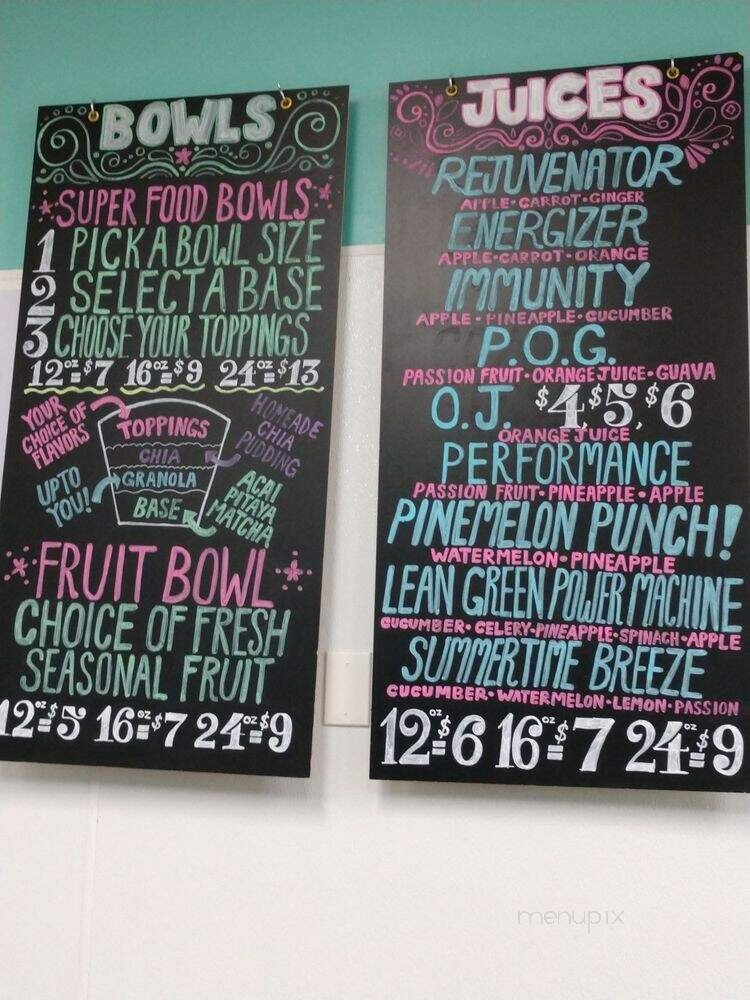 BOWLS
SUPER FOOD BOWLS
1 PICK A BOWL SIZE
2 SELECT A BASE
3 CHOOSE YOUR TOPPINGS
12oz=$7 16oz=$9 24oz=$13
YOUR
CHOICE OF
FLAVORS
TOPPINGS
HOMEADE
CHIA
PUDDING
CHIA
UP TO
YOU!
GRANOLA
BASE
ACAI
PITAYA
MATCHA
FRUIT BOWL
CHOICE OF FRESH
SEASONAL FRUIT
12oz=$5 16oz=$7 24oz=$9
JUICES
REJUVENATOR
APPLE • CARROT • GINGER
ENERGIZER
APPLE • CARROT • ORANGE
IMMUNITY
APPLE • PINEAPPLE • CUCUMBER
P.O.G.
PASSION FRUIT • ORANGE JUICE • GUAVA
O.J. $4, $5, $6
ORANGE JUICE
PERFORMANCE
PASSION FRUIT • PINEAPPLE • APPLE
PINEMELON PUNCH!
WATERMELON • PINEAPPLE
LEAN GREEN POWER MACHINE
CUCUMBER • CELERY • PINEAPPLE • SPINACH • APPLE
SUMMERTIME BREEZE
CUCUMBER • WATERMELON • LEMON • PASSION
12oz=$6 16oz=$7 24oz=$9
menupix